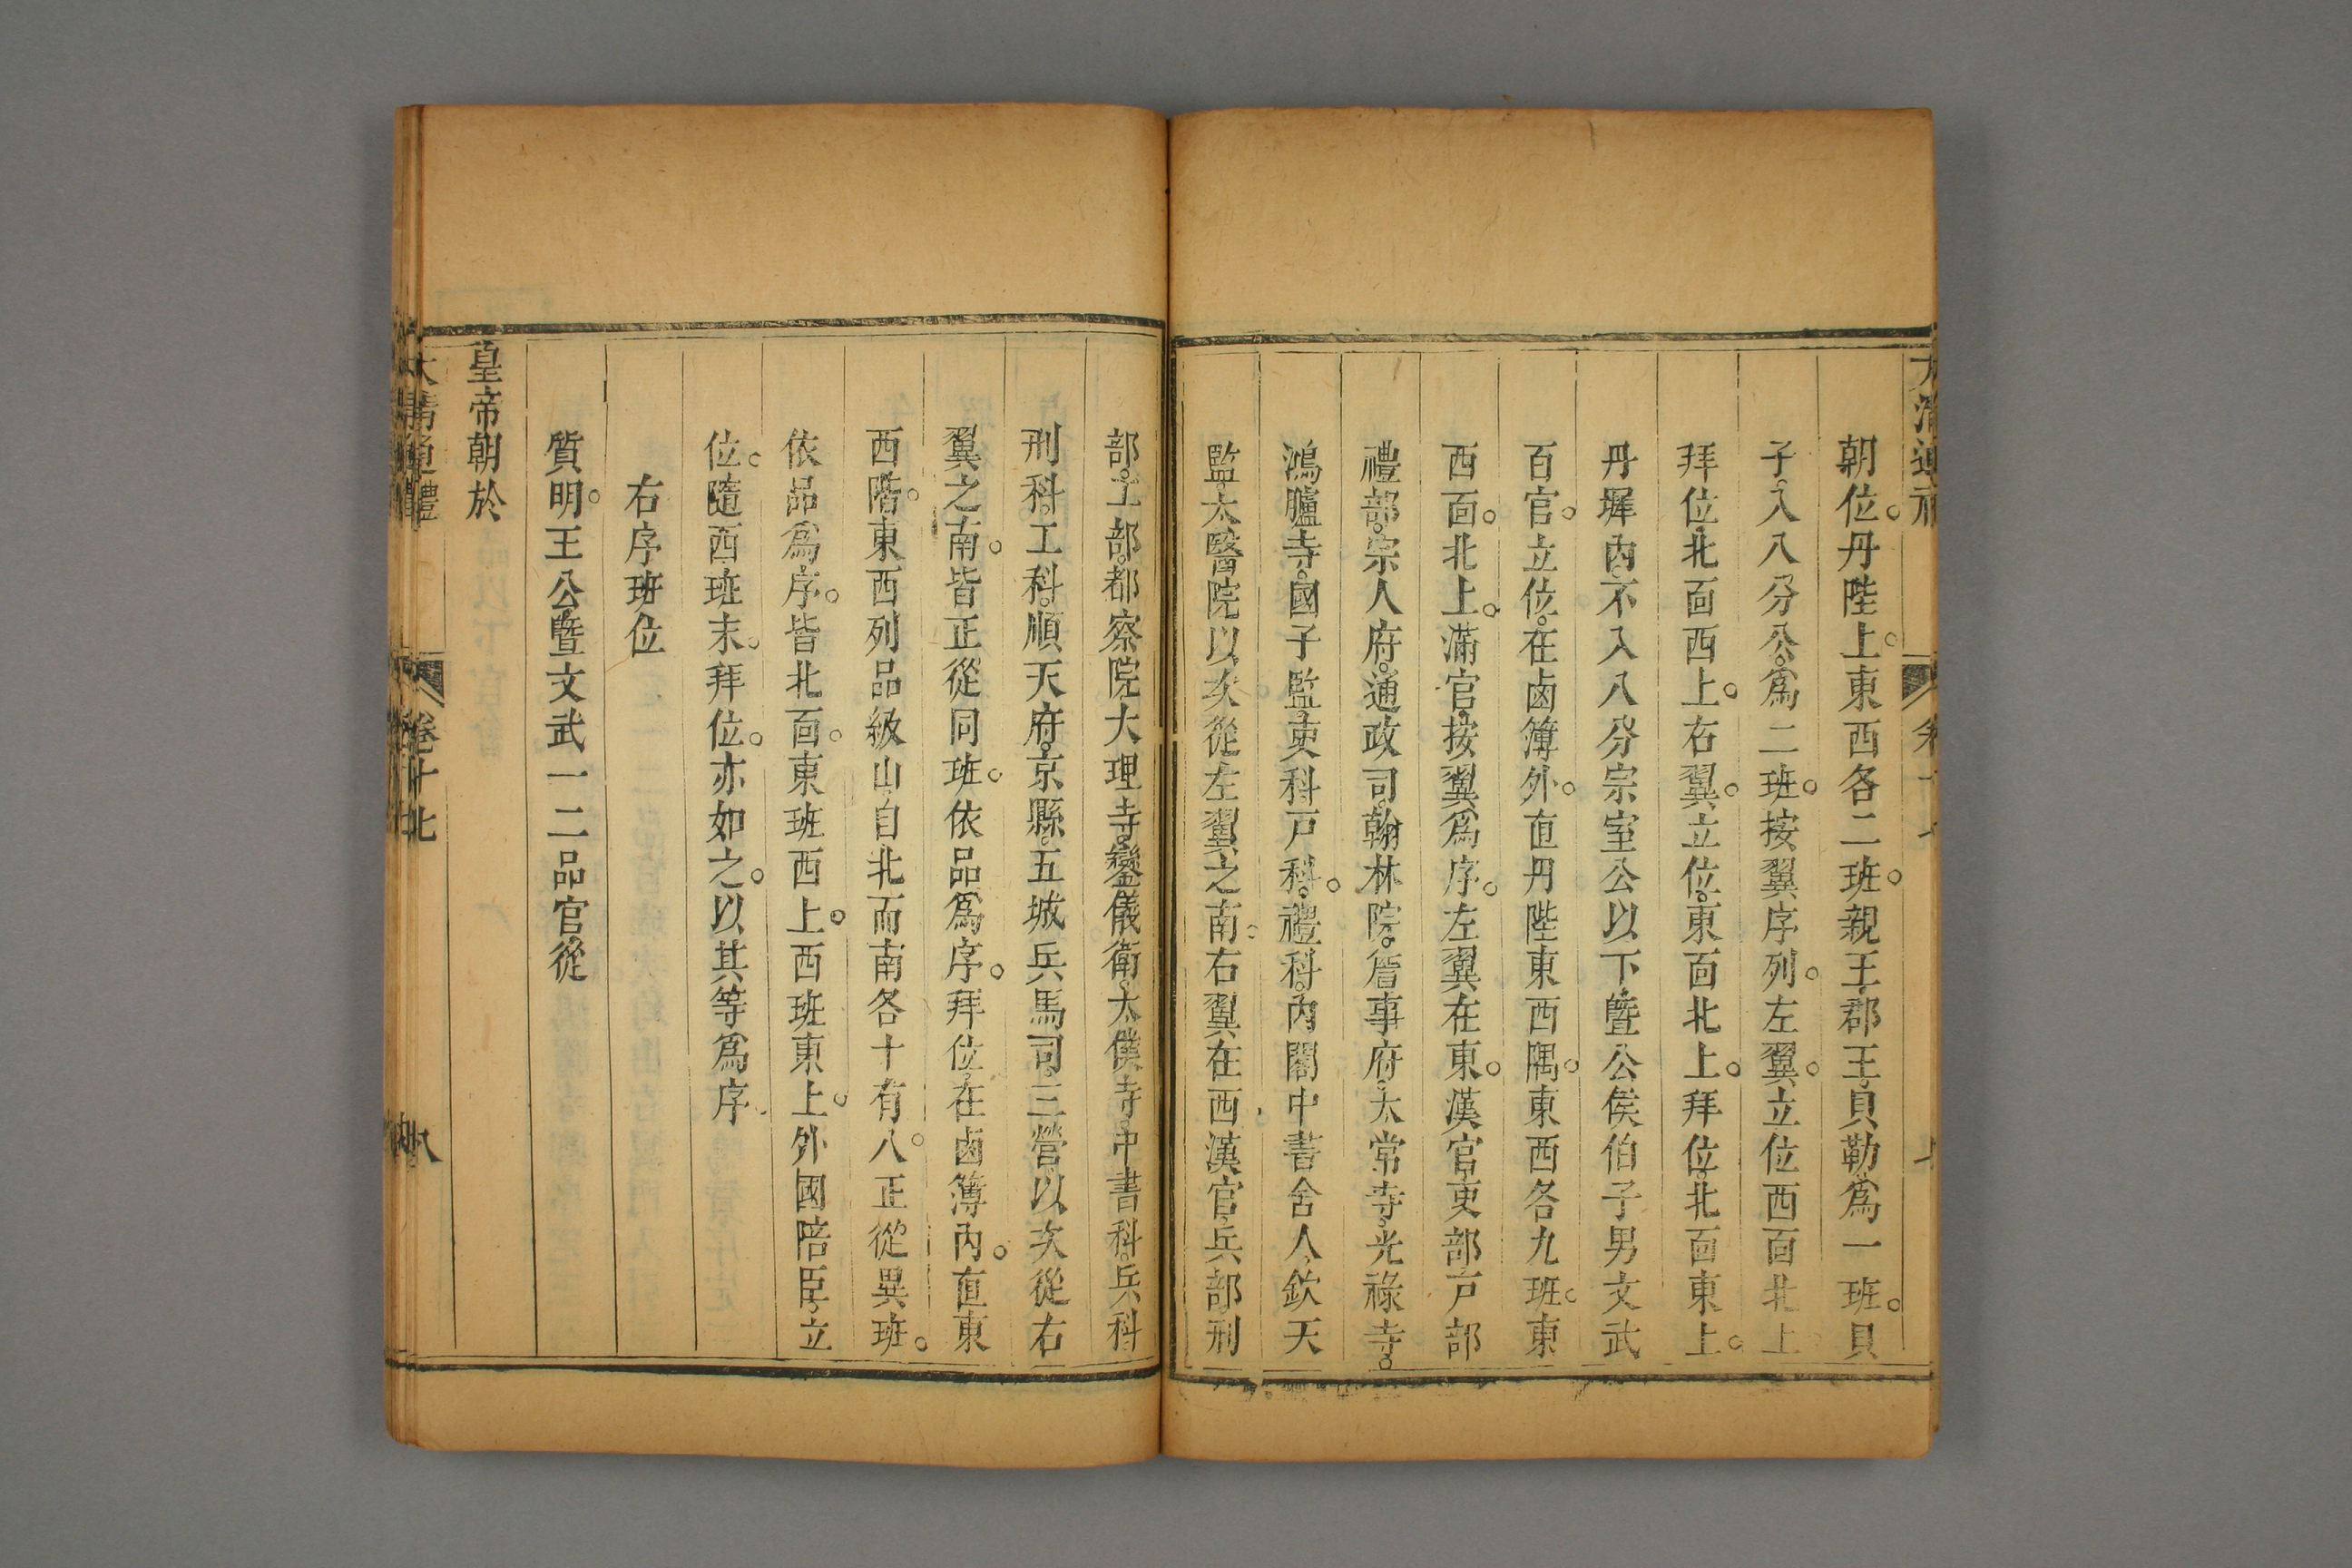 朝位。丹陛上。東西各二班。親王、郡王、貝勒、爲一班。貝
子、入八分公、爲二班。按翼序列。左翼。立位西面北上
拜位北面西上。右翼。立位、東面北上。拜位、北面東上。
丹墀內、不入八分宗室公以下、曁公侯伯子男文武
百官。立位、在鹵簿外。直丹陛東西隅。東西各九班。東
西面。北上。滿官、按翼爲序。左翼在東。漢官、吏部戸部
禮部、宗人府、通政司、翰林院、詹事府、太常寺、光祿寺、
鴻臚寺、國子監、吏科戸科。禮科、內閣中書舍人、欽天
監、太醫院以次從左翼之南。右翼在西漢官、兵部刑
部、工部、都察院大理寺、鑾儀衛、太僕寺、中書科、兵科
刑科、工科、順天府、京縣、五城兵馬司、三營以次從右
翼之南。皆正從同班。依品爲序。拜位、在鹵簿內。直東
西階。東西列品級山、自北而南各十有八。正從異班。
依品爲序。皆北面。東班西上。西班東上。外國陪臣、立
位。隨西班末。拜位。亦如之。以其等爲序。
右序班位
質明。王公曁文武一二品官從
皇帝朝於
大清通禮 卷十七 八